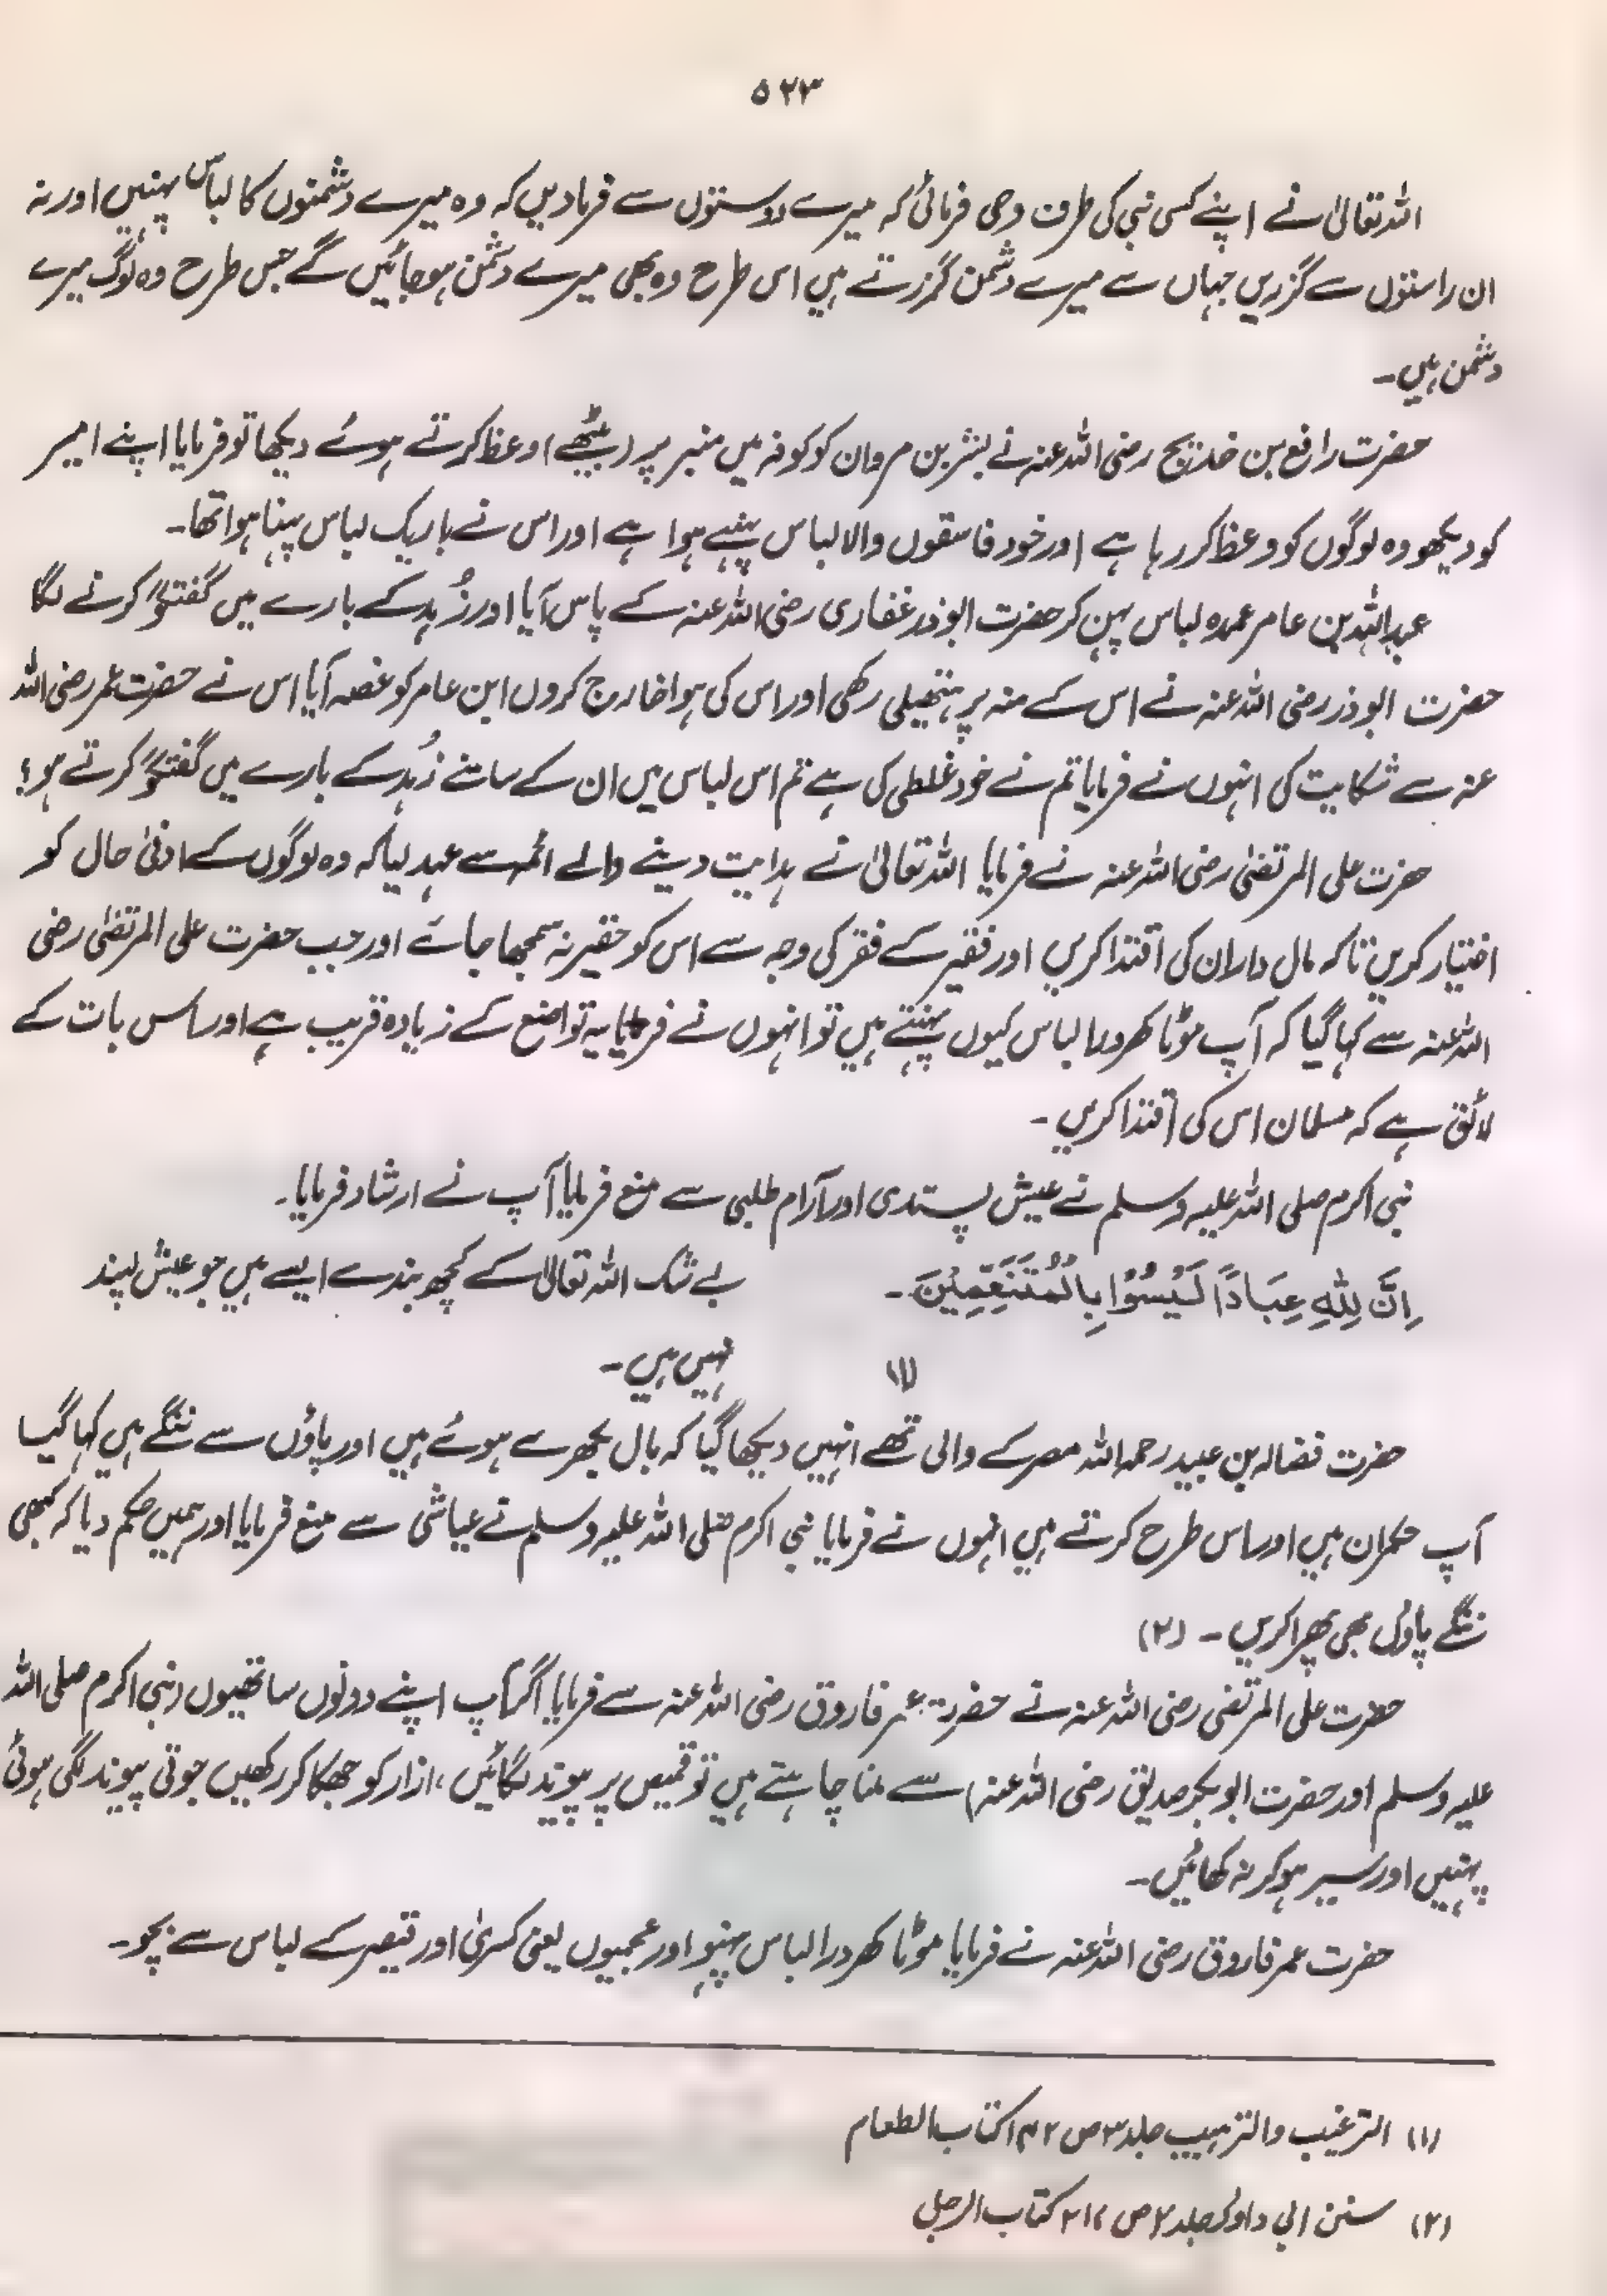 ۵۲۳
اللہ تعالیٰ نے اپنے کسی نبی کی طرف وحی فرمائی کہ میرے دوستوں سے فرمادیں کہ وہ میرے دشمنوں کا لباس پہنیں اور نہ
ان راستوں سے گزریں جہاں سے میرے دشمن گزرتے ہیں اس طرح وہ بھی میرے دشمن ہوجائیں گے جس طرح وہ لوگ میرے
دشمن ہیں۔
حضرت رافع بن خدیج رضی اللہ عنہ نے بشر بن مروان کو کوفہ میں منبر پر (بیٹھے) وعظ کرتے ہوئے دیکھا تو فرمایا اپنے امیر
کو دیکھو وہ لوگوں کو وعظ کر رہا ہے اور خود فاسقوں والا لباس پہنے ہوا ہے اور اس نے باریک لباس پہنا ہوا تھا۔
عبداللہ بن عامر عمدہ لباس پہن کر حضرت ابوذر غفاری رضی اللہ عنہ کے پاس آیا اور زُہد کے بارے میں گفتگو کرنے لگا
حضرت ابوذر رضی اللہ عنہ نے اس کے منہ پر ہتھیلی رکھی اور اس کی ہوا خارج کروں ابن عامر کو غصہ آیا اس نے حضرت عمر رضی اللہ
عنہ سے شکایت کی انہوں نے فرمایا تم نے خود غلطی کی ہے تم اس لباس میں ان کے سامنے زُہد کے بارے میں گفتگو کرتے ہو؟
حضرت علی المرتضیٰ رضی اللہ عنہ نے فرمایا اللہ تعالیٰ نے ہدایت دینے والے ائمہ سے عہد لیا کہ وہ لوگوں کے ادنیٰ حال کو
اختیار کریں تاکہ مال دار ان کی اقتدا کریں اور فقیر کے فقر کی وجہ سے اس کو حقیر نہ سمجھا جائے اور جب حضرت علی المرتضیٰ رضی
اللہ عنہ سے کہا گیا کہ آپ موٹا کھردرا لباس کیوں پہنتے ہیں تو انہوں نے فرمایا یہ تواضع کے زیادہ قریب ہے اور اس بات کے
لائق ہے کہ مسلمان اس کی اقتدا کریں۔
نبی اکرم صلی اللہ علیہ وسلم نے عیش پسندی اور آرام طلبی سے منع فرمایا آپ نے ارشاد فرمایا۔
اِنَّ لِلّٰهِ عِبَادًا لَيْسُوْا بِالْمُتَنَعِّمِيْنَ۔ بے شک اللہ تعالیٰ کے کچھ بندے ایسے ہیں جو عیش پسند
(۱) نہیں ہیں۔
حضرت فضالہ بن عبید رحمہ اللہ مصر کے والی تھے انہیں دیکھا گیا کہ بال بکھرے ہوئے ہیں اور پاؤں سے ننگے ہیں کہا گیا
آپ حکمران ہیں اور اس طرح کرتے ہیں انہوں نے فرمایا نبی اکرم صلی اللہ علیہ وسلم نے عیاشی سے منع فرمایا اور ہمیں حکم دیا کہ کبھی
ننگے پاؤں بھی پھرا کریں۔ (۲)
حضرت علی المرتضی رضی اللہ عنہ نے حضرت عمر فاروق رضی اللہ عنہ سے فرمایا اگر آپ اپنے دونوں ساتھیوں (نبی اکرم صلی اللہ
علیہ وسلم اور حضرت ابوبکر صدیق رضی اللہ عنہ) سے ملنا چاہتے ہیں تو قمیص پر پیوند لگائیں، ازار کو جھکا کر رکھیں جوتی پیوند لگی ہوئی
پہنیں اور سیر ہو کر نہ کھائیں۔
حضرت عمر فاروق رضی اللہ عنہ نے فرمایا موٹا کھردرا لباس پہنو اور عجمیوں یعنی کسریٰ اور قیصر کے لباس سے بچو۔
(۱) الترغیب والترہیب جلد ۳ ص ۱۴۲ کتاب الطعام
(۲) سنن ابی داؤد جلد ۲ ص ۲۱۷ کتاب الرجل